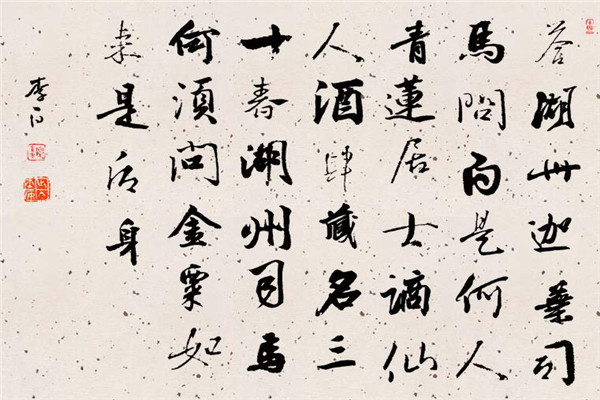 荅湖州迦葉司
馬問白是何人
青蓮居士謫仙
人酒肆藏名三
十春湖州司馬
何須問金粟如
来是后身
李白